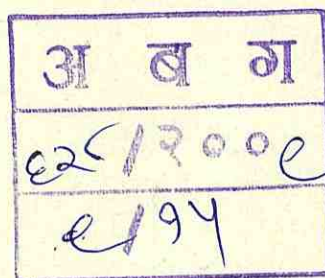 अ ब ग
६२८/२००९
९/१५